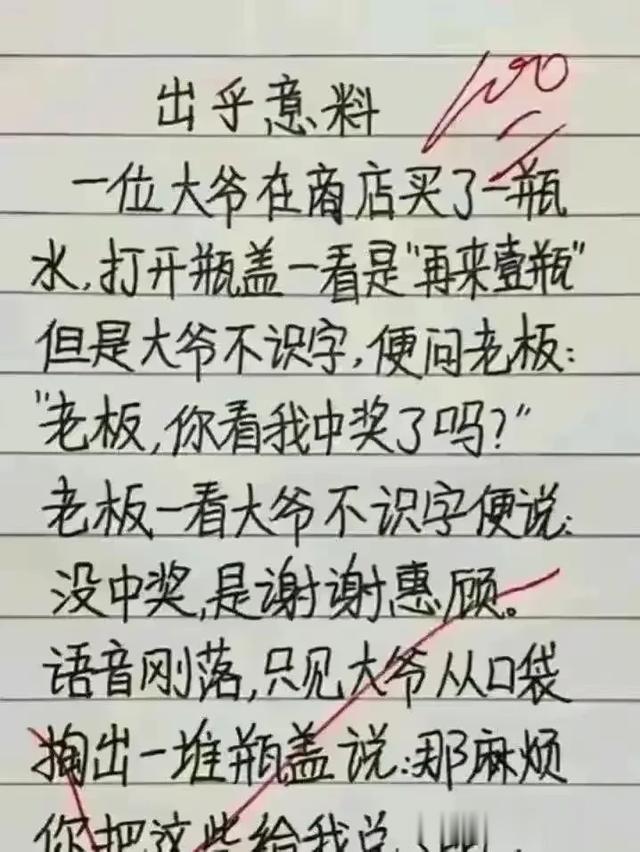 出乎意料
100
一位大爷在商店买了一瓶
水,打开瓶盖一看是"再来壹瓶"
但是大爷不识字,便问老板:
"老板,你看我中奖了吗?"
老板一看大爷不识字便说:
没中奖,是谢谢惠顾。
语音刚落,只见大爷从口袋
掏出一堆瓶盖说:那麻烦
你把这些给我兑